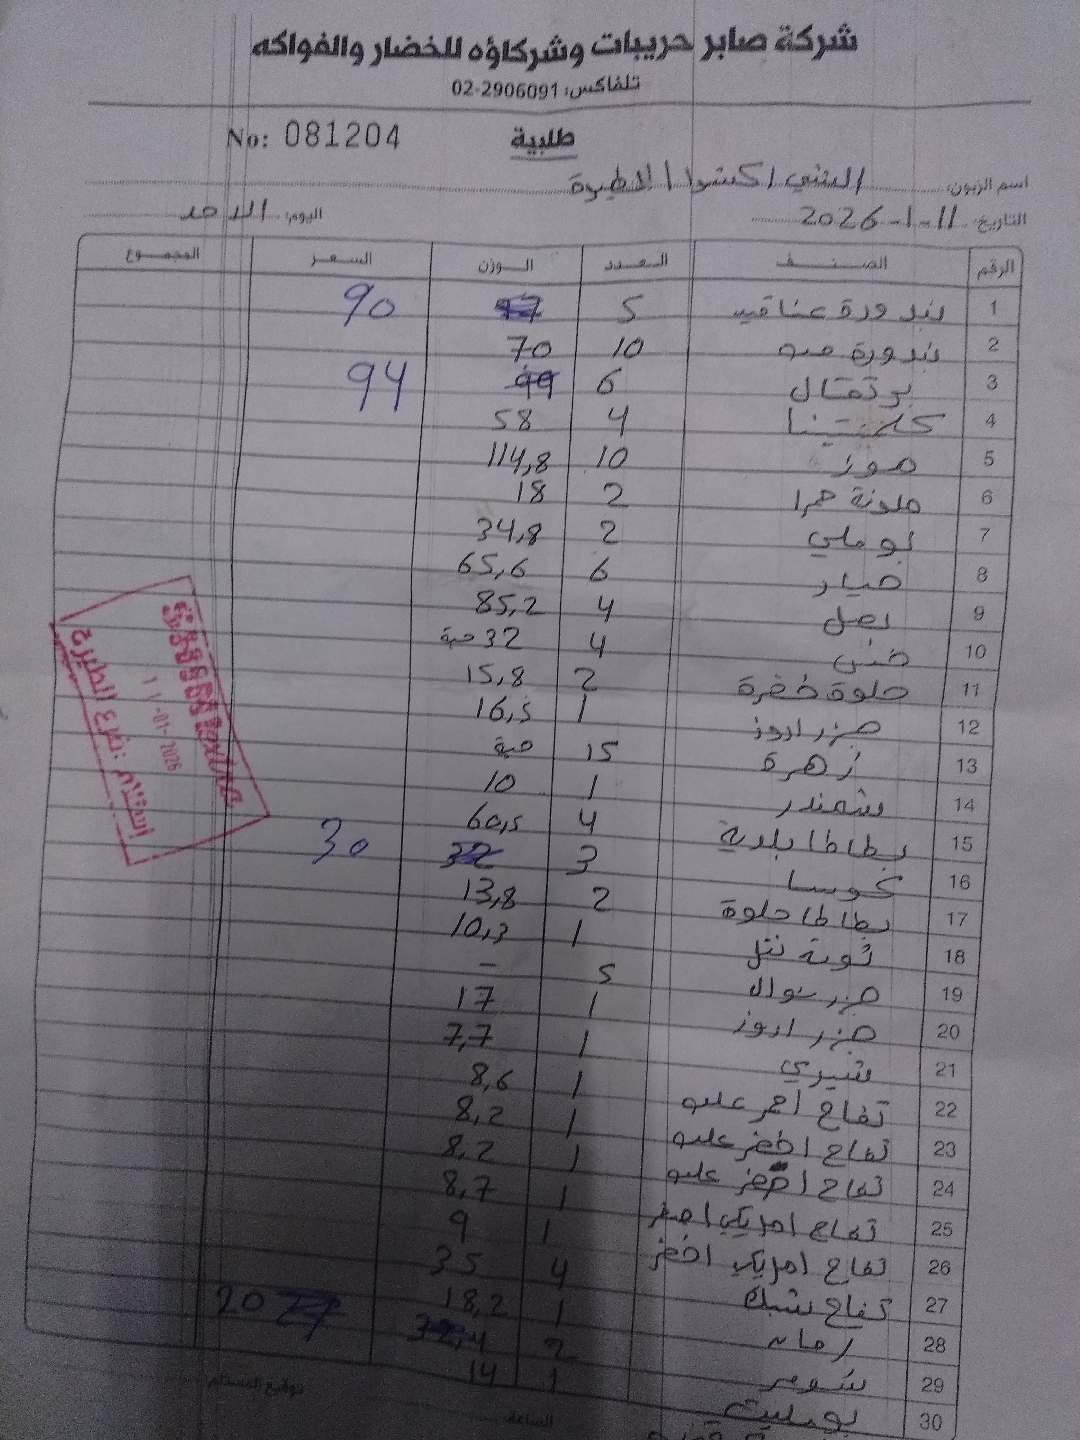 شركة صابر حريبات وشركاؤه للخضار والفواكه
تلفاكس: 02-2906091
طلبية
No: 081204
اسم الزبون: الستي اكسترا / الطيرة
التاريخ: 11-1-2026 اليوم: الاحد
الرقم الصنف العدد الوزن السعر المجموع
1 بندورة عناقيد 5 90
2 بندورة حبه 10 70
3 برتقال 6 94
4 كلمنتينا 4 58
5 موز 10 114,8
6 ملونة حمرا 2 18
7 بوملي 2 34,8
8 خيار 6 65,6
9 بصل 4 85,2
10 خس 4 32 حبة
11 حلوة خضرة 2 15,8
12 جزر اروز 1 16,5
13 زهرة 15 حبة
14 شمندر 1 10
15 بطاطا بلدية 4 60,5
16 كوسا 3 32 30
17 بطاطا حلوة 2 13,8
18 ثومة نتل 1 10,3
19 جزر شوال 5 -
20 جزر اروز 1 17
21 شيري 1 7,7
22 تفاح احمر علبه 1 8,6
23 تفاح اخضر علبه 1 8,2
24 تفاح اصفر علبه 1 8,2
25 تفاح امريكي اصفر 1 8,7
26 تفاح امريكي اخضر 1 9
27 تفاح شبك 4 35
28 رمان 1 18,2
29 شومر 2 20
30 بومليت 1 14
الساعة
توقيع المستلم
إستلام : فرع الطيرة
11-01-2026